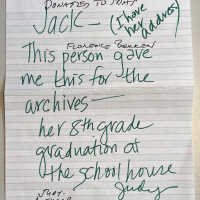 DONATED TO JUDY
Jack— (I have
her address)
FLORENCE
This person gave
me this for the
archives—
her 8th grade
graduation at
the school house
Judy
JUDY-